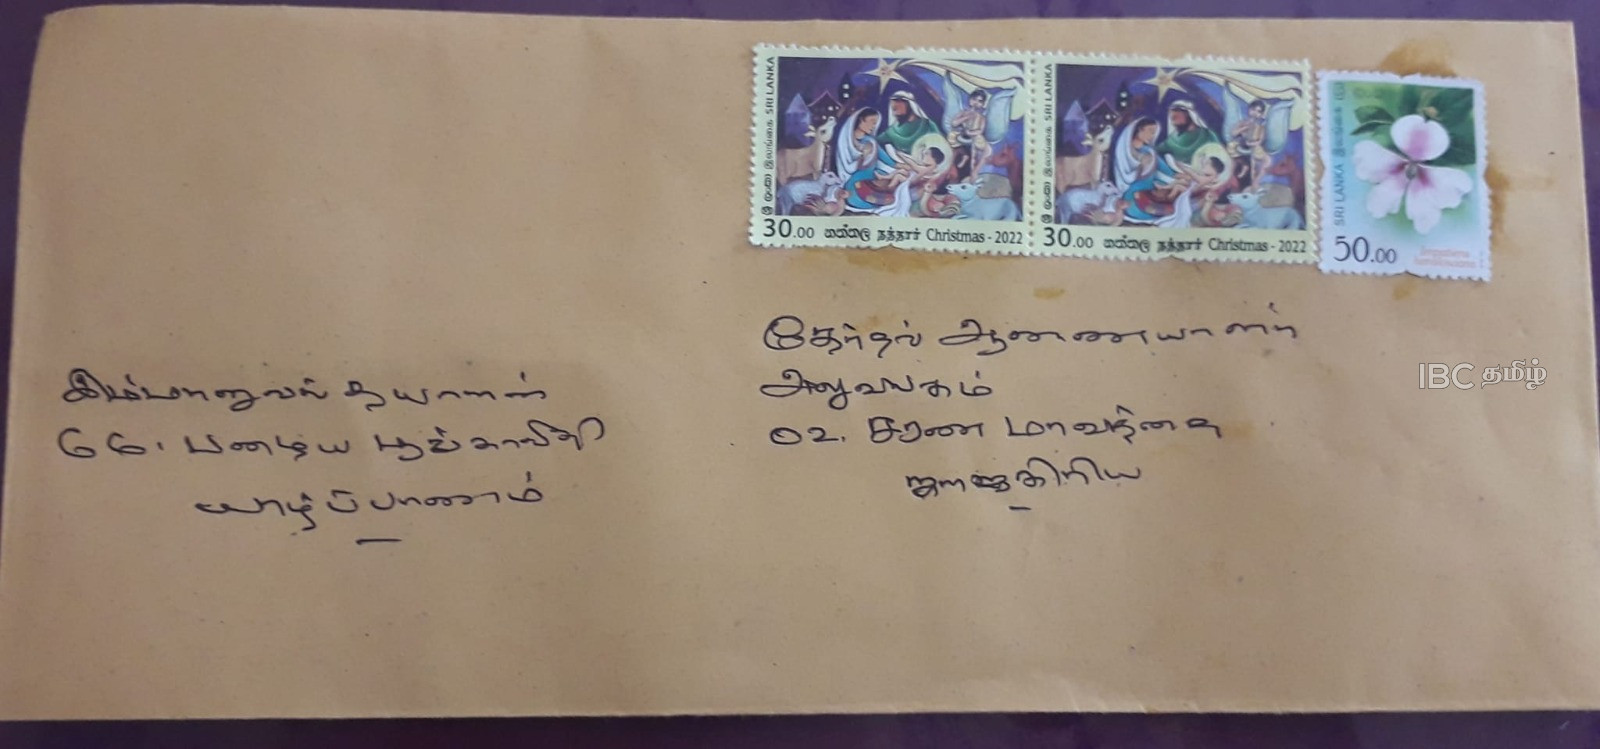 ශ්‍රී ලංකා இலங்கை SRI LANKA
30.00 නත්තල நத்தார் Christmas - 2022
ශ්‍රී ලංකා இலங்கை SRI LANKA
30.00 නත්තල நத்தார் Christmas - 2022
SRI LANKA இலங்கை
50.00
தேர்தல் ஆணையாளர்
அலுவலகம்
02. சரண மாவத்தை
ராஜகிரிய
இம்மானுவல் தயாளன்
66.
யாழ்ப்பாணம்
IBC தமிழ்